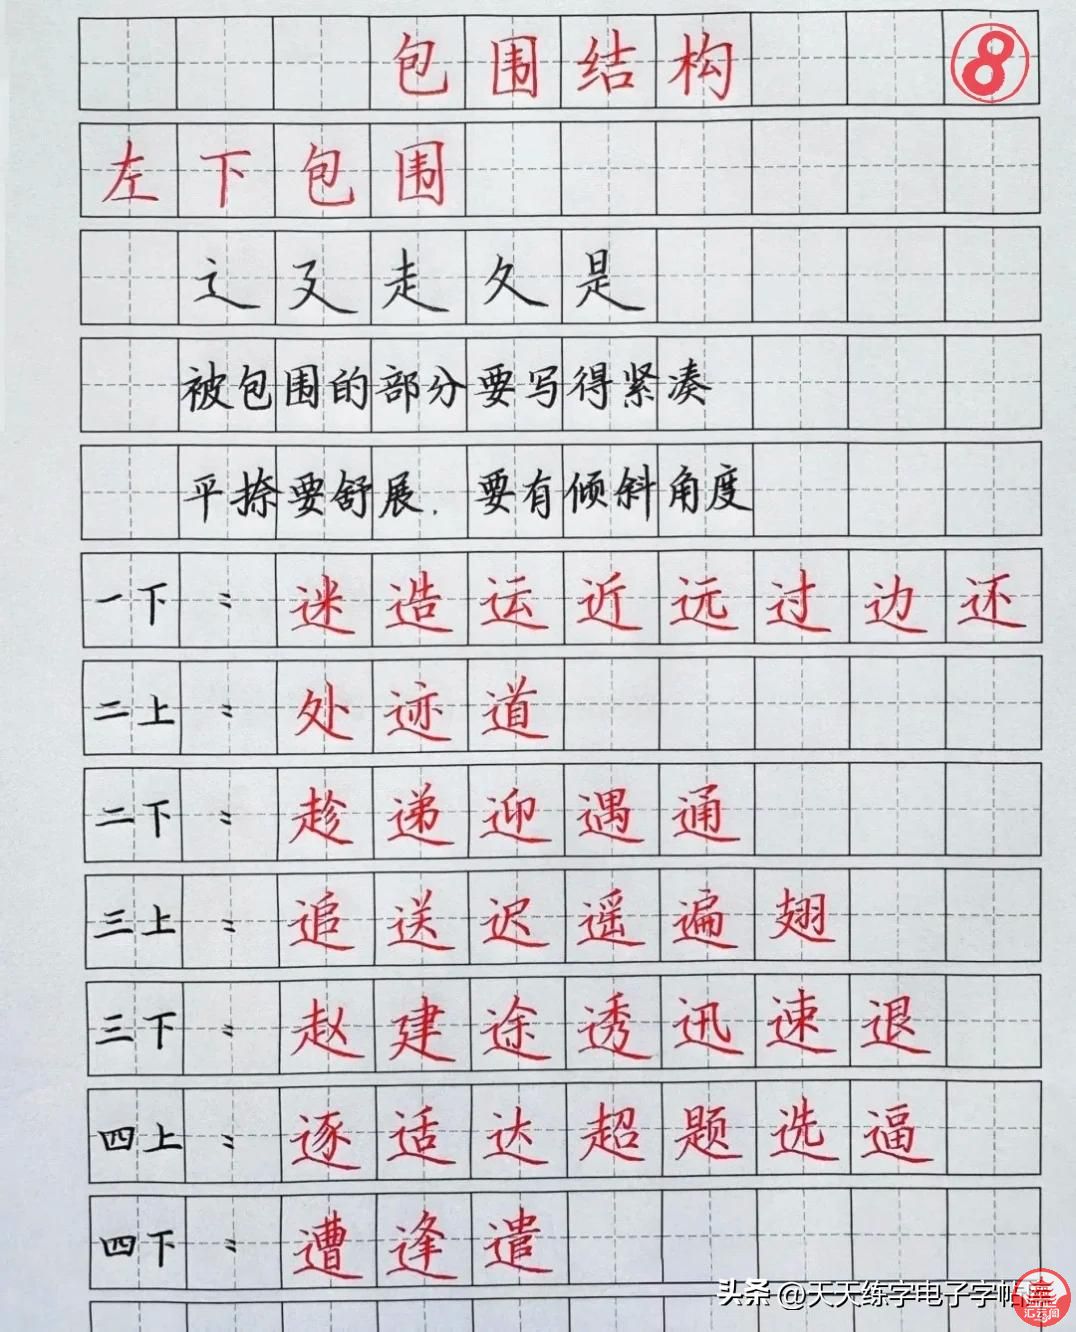 包围结构 8
左下包围
辶 廴 走 夂 是
被包围的部分要写得紧凑
平捺要舒展.要有倾斜角度
一下：迷造运近远过边还
二上：处迹道
二下：趁递迎遇通
三上：追送迟遥遍翅
三下：赵建途透迅速退
四上：逐适达超题选逼
四下：遭逢遣
头条 @天天练字电子字帖库
汇云阁